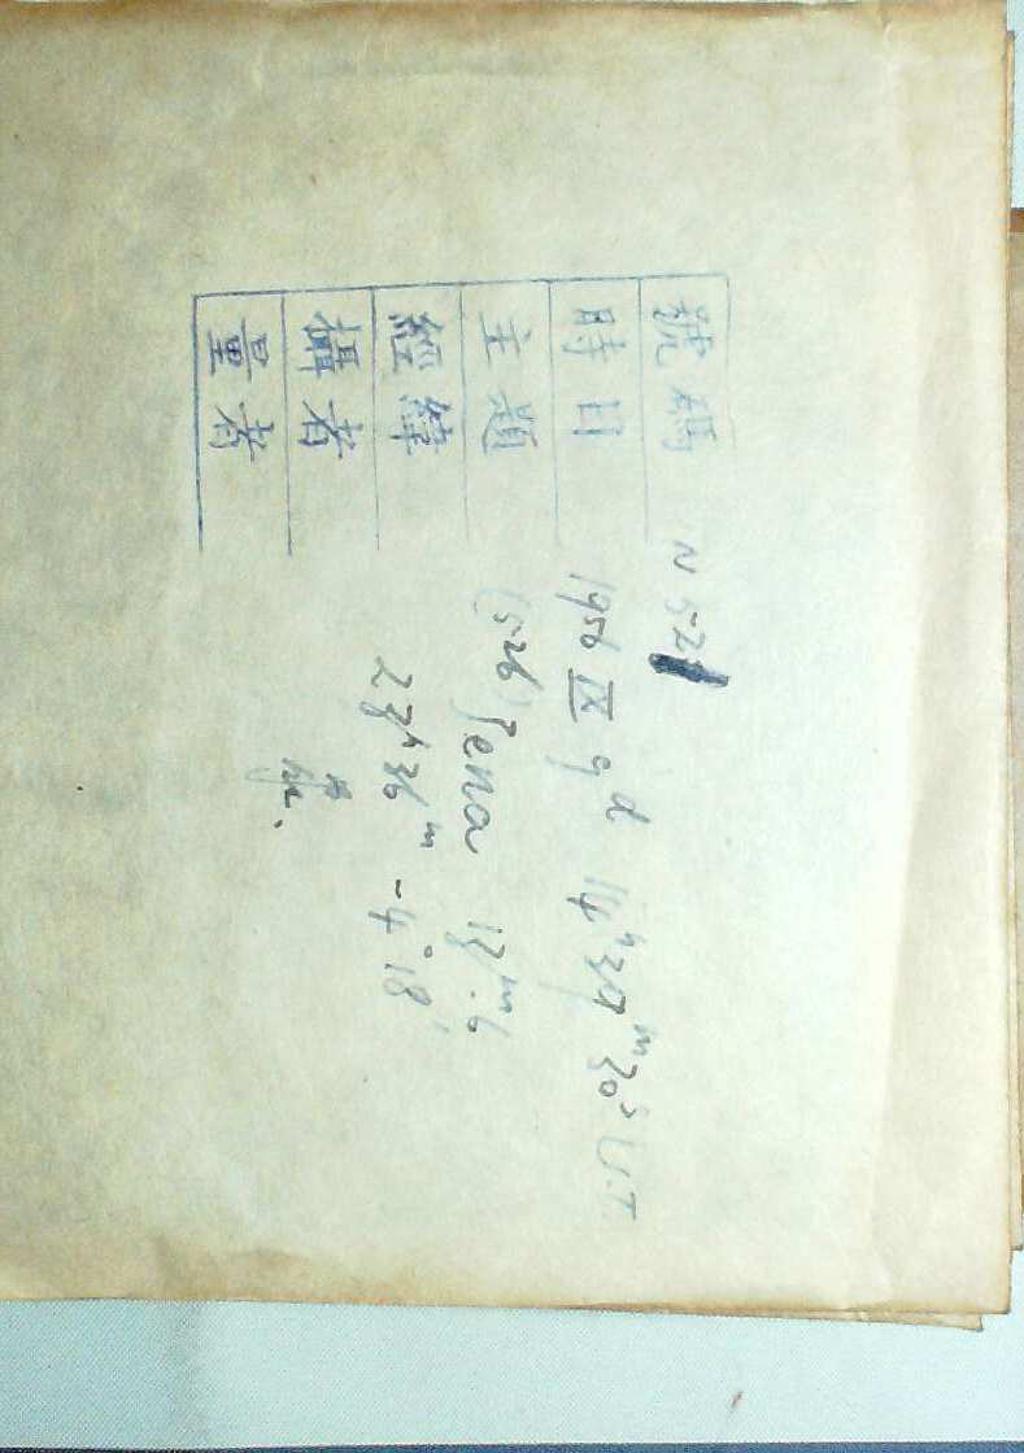 號碼 N 52
時日 1956 IX 9ᵈ 14ʰ37ᵐ30ˢ U.T.
主題 (526) Jena 13ᵐ.6
經緯 23ʰ36ᵐ -4°18′
攝者
量者